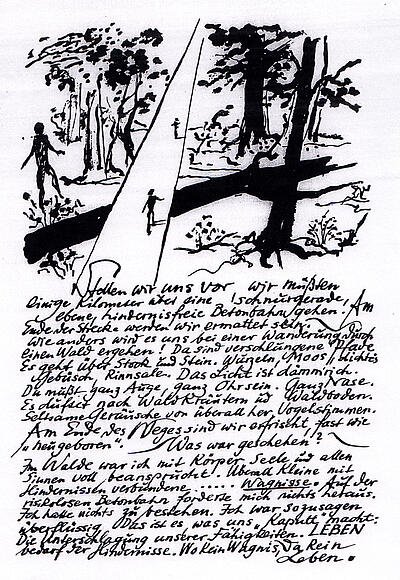 Stellen wir uns vor wir müßten
einige Kilometer über eine schnurgerade,
ebene, hindernisfreie Betonbahn gehen. Am
Ende der Strecke werden wir ermattet sein.
Wie anders wird es uns bei einer Wanderung durch
einen Wald ergehen! Da sind verschlungene Pfade
Es geht über Stock und Stein. Wurzeln, Moos, dichtes
Gebüsch, Rinnsale. Das Licht ist dämmrich.
Du mußt ganz Auge, ganz Ohr sein. Ganz Nase.
Es duftet nach Waldkräutern und Waldboden.
Seltsame Geräusche von überall her Vogelstimmen.
Am Ende des Weges sind wir erfrischt, fast wie
"neugeboren". Was war geschehen?
Im Walde war ich mit Körper Seele und allen
Sinnen voll beansprucht! Überall Kleine mit
Hindernissen verbundene...... Wagnisse. Auf der
risikolosen Betonbahn forderte mich nichts heraus.
Ich hatte nichts zu bestehen. Ich war sozusagen
überflüssig. Das ist es, was uns "Kaputt" macht:
Die Unterschlagung unserer Fähigkeiten. LEBEN
bedarf der Hindernisse. Wo Kein Wagnis, da Kein
Leben.